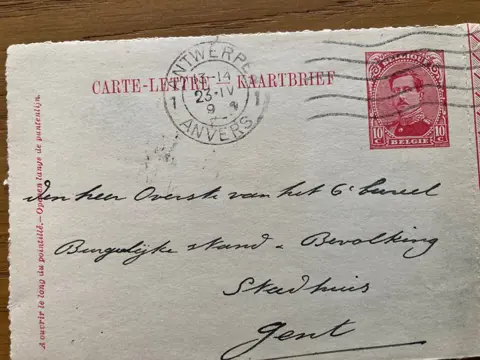 ANTWERPEN
13-14
23·IV
1 1
9
ANVERS
CARTE-LETTRE KAARTBRIEF
BELGIQUE
10 C 10 C
BELGIË
Den heer Overste van het 6e bureel
Burgelijke stand & Bevolking
Stadhuis
Gent
A ouvrir le long du pointillé. — Openen langs de puntenlijn.